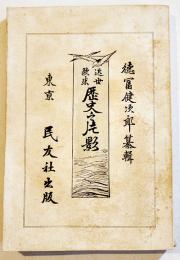 徳冨健次郎纂輯
近世欧米
歴史之片影
東京
民友社出版